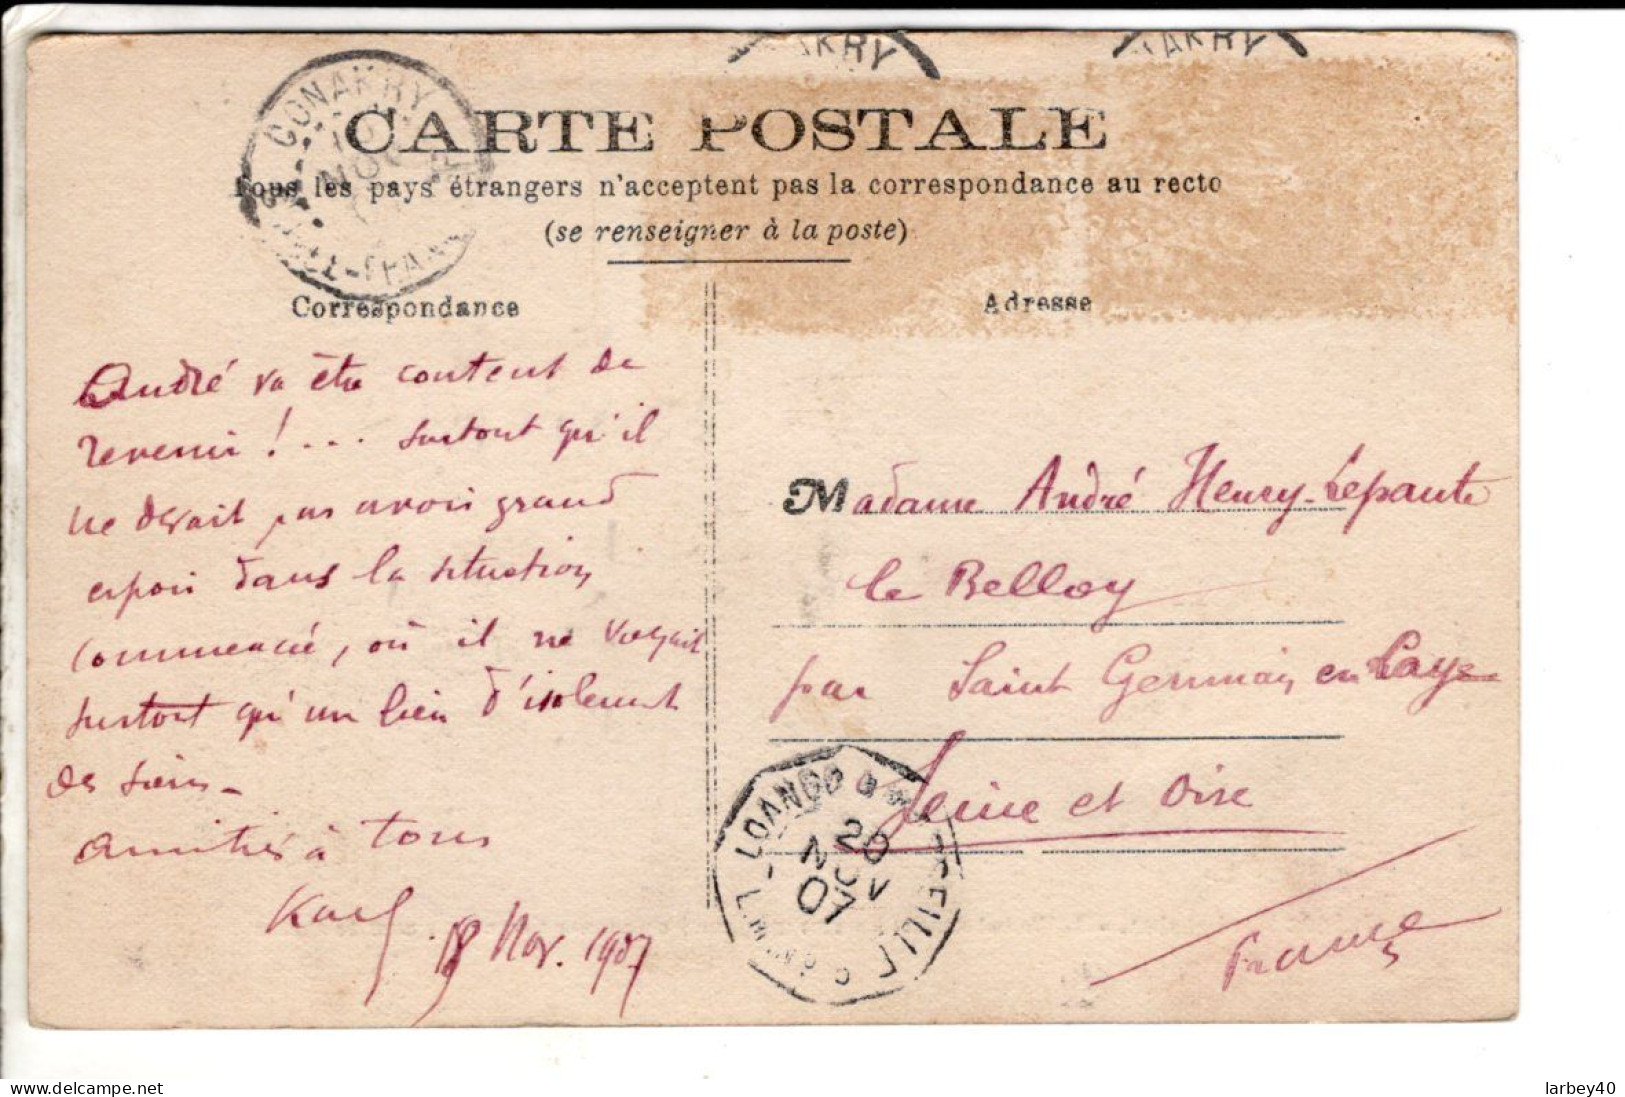 CONAKRY
AKRY
AKRY
CARTE POSTALE
Tous les pays étrangers n'acceptent pas la correspondance au recto
(se renseigner à la poste)
Correspondance
André va être content de
revenir ! ... surtout qu'il
ne devait pas avoir grand
espoir dans la situation
commencée, où il ne voyait
surtout qu'un lieu d'isolement
des siens -
Amitiés à tous
Karl
18 Nov. 1907
Adresse
Madame André Henry-Lepaute
le Belloy
par Saint Germain en Laye
Seine et Oise
France
LOANGO
20
NOV
07
larbey40